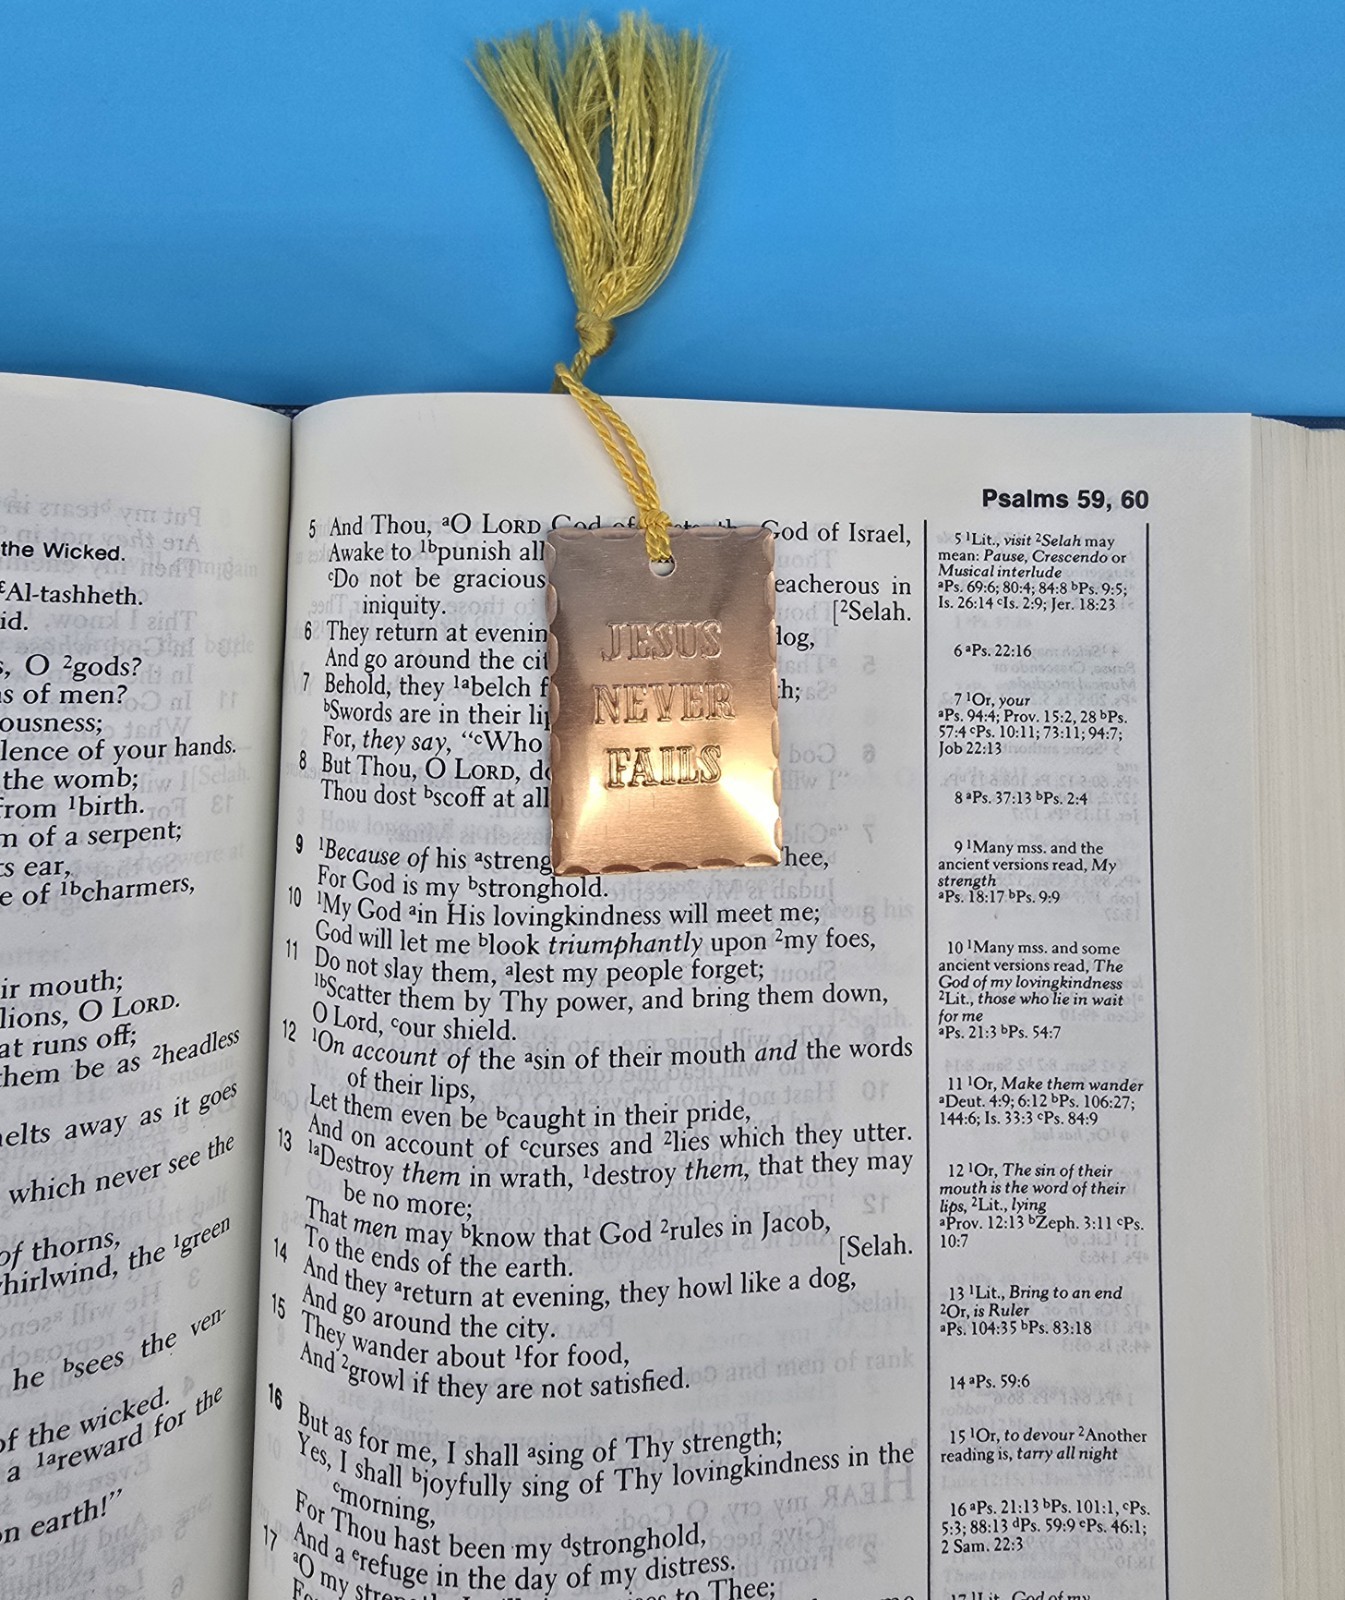 the Wicked.
Al-tashheth.
id.
s, O ²gods?
s of men?
ousness;
lence of your hands.
the womb;
from ¹birth.
m of a serpent;
ts ear,
e of ¹ᵇcharmers,
ir mouth;
lions, O LORD.
at runs off;
hem be as ²headless
elts away as it goes
which never see the
of thorns,
hirlwind, the ¹green
he ᵇsees the ven-
of the wicked.
a ¹ᵃreward for the
n earth!”
Psalms 59, 60
5 And Thou, ᵃO LORD God of God of Israel,
Awake to ¹ᵇpunish all
ᶜDo not be gracious eacherous in
iniquity. [²Selah.
6 They return at evenin dog,
And go around the cit
7 Behold, they ¹ᵃbelch f h;
ᵇSwords are in their li
For, they say, “ᶜWho
8 But Thou, O LORD, do
Thou dost ᵇscoff at all
9 ¹Because of his ᵃstreng hee,
For God is my ᵇstronghold.
10 ¹My God ᵃin His lovingkindness will meet me;
God will let me ᵇlook triumphantly upon ²my foes,
11 Do not slay them, ᵃlest my people forget;
¹ᵇScatter them by Thy power, and bring them down,
O Lord, ᶜour shield.
12 ¹On account of the ᵃsin of their mouth and the words
of their lips,
Let them even be ᵇcaught in their pride,
And on account of ᶜcurses and ²lies which they utter.
13 ¹ᵃDestroy them in wrath, ¹destroy them, that they may
be no more;
That men may ᵇknow that God ²rules in Jacob,
To the ends of the earth. [Selah.
14 And they ᵃreturn at evening, they howl like a dog,
And go around the city.
15 They wander about ¹for food,
And ²growl if they are not satisfied.
16 But as for me, I shall ᵃsing of Thy strength;
Yes, I shall ᵇjoyfully sing of Thy lovingkindness in the
ᶜmorning,
For Thou hast been my ᵈstronghold,
And a ᵉrefuge in the day of my distress.
17 ᵃO my to Thee;
JESUS
NEVER
FAILS
5 ¹Lit., visit ²Selah may
mean: Pause, Crescendo or
Musical interlude
ᵃPs. 69:6; 80:4; 84:8 ᵇPs. 9:5;
Is. 26:14 ᶜIs. 2:9; Jer. 18:23
6 ᵃPs. 22:16
7 ¹Or, your
ᵃPs. 94:4; Prov. 15:2, 28 ᵇPs.
57:4 ᶜPs. 10:11; 73:11; 94:7;
Job 22:13
8 ᵃPs. 37:13 ᵇPs. 2:4
9 ¹Many mss. and the
ancient versions read, My
strength
ᵃPs. 18:17 ᵇPs. 9:9
10 ¹Many mss. and some
ancient versions read, The
God of my lovingkindness
²Lit., those who lie in wait
for me
ᵃPs. 21:3 ᵇPs. 54:7
11 ¹Or, Make them wander
ᵃDeut. 4:9; 6:12 ᵇPs. 106:27;
144:6; Is. 33:3 ᶜPs. 84:9
12 ¹Or, The sin of their
mouth is the word of their
lips, ²Lit., lying
ᵃProv. 12:13 ᵇZeph. 3:11 ᶜPs.
10:7
13 ¹Lit., Bring to an end
²Or, is Ruler
ᵃPs. 104:35 ᵇPs. 83:18
14 ᵃPs. 59:6
15 ¹Or, to devour ²Another
reading is, tarry all night
16 ᵃPs. 21:13 ᵇPs. 101:1, ᶜPs.
5:3; 88:13 ᵈPs. 59:9 ᵉPs. 46:1;
2 Sam. 22:3
17 ¹Lit., God of my